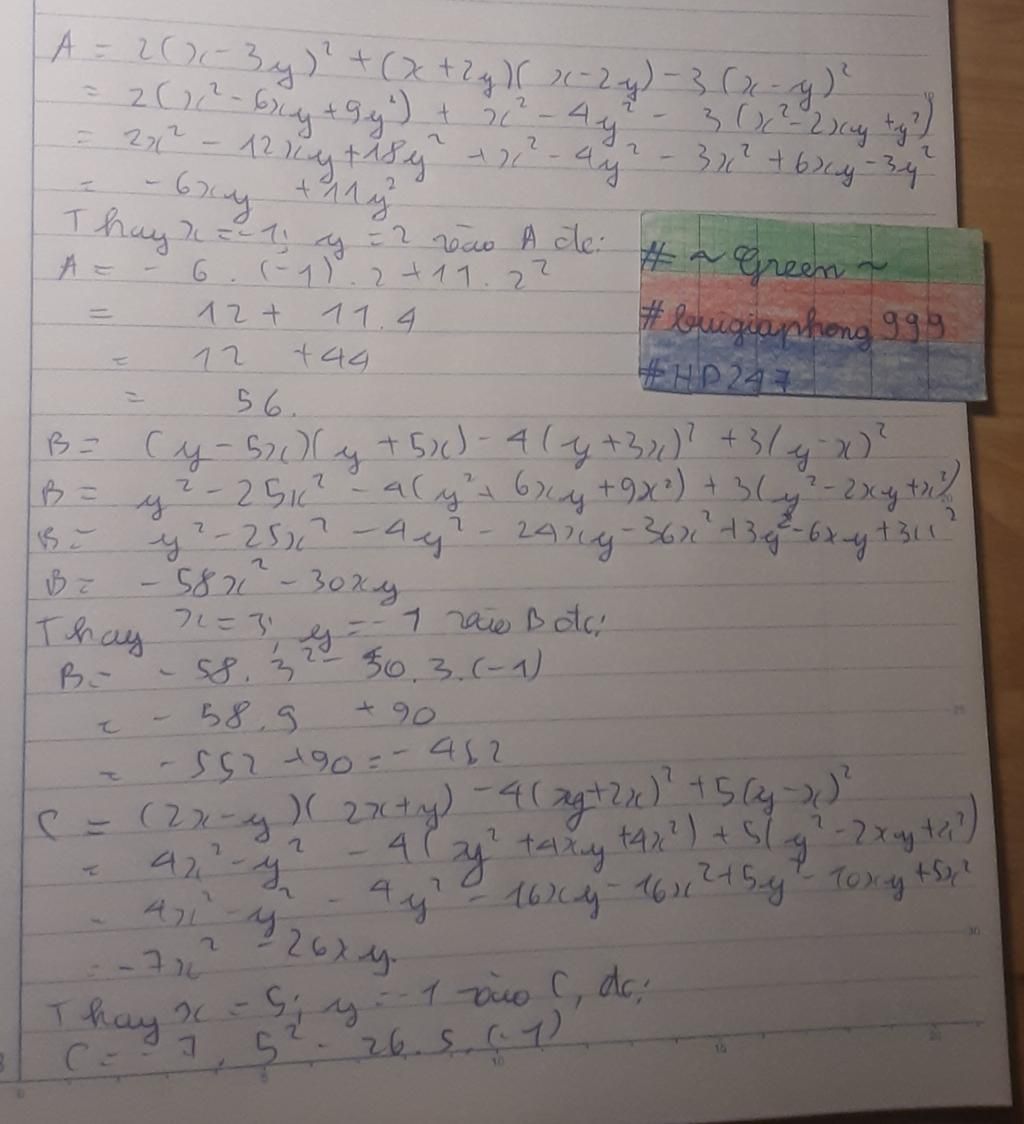 A = 2(x-3y)² + (x+2y)(x-2y) - 3(x-y)²
= 2(x² - 6xy + 9y²) + x² - 4y² - 3(x² - 2xy + y²)
= 2x² - 12xy + 18y² + x² - 4y² - 3x² + 6xy - 3y²
= - 6xy + 11y²
Thay x = -1; y = 2 vào A đc:
A = - 6 . (-1) . 2 + 11 . 2²
= 12 + 11.4
= 12 + 44
= 56.
# ~ Green ~
# buigiaphong 999
# HP247
B = (y - 5x)(y + 5x) - 4(y + 3x)² + 3(y - x)²
B = y² - 25x² - 4(y² + 6xy + 9x²) + 3(y² - 2xy + x²)
B = y² - 25x² - 4y² - 24xy - 36x² + 3y² - 6xy + 3x²
B = - 58x² - 30xy
Thay x = 3; y = -1 vào B đc:
B = - 58 . 3² - 30 . 3 . (-1)
= - 58 . 9 + 90
= - 552 + 90 = - 452
C = (2x - y)(2x + y) - 4(y + 2x)² + 5(y - x)²
= 4x² - y² - 4(y² + 4xy + 4x²) + 5(y² - 2xy + x²)
= 4x² - y² - 4y² - 16xy - 16x² + 5y² - 10xy + 5x²
= - 7x² - 26xy.
Thay x = 5; y = -1 vào C, đc:
C = - 7 . 5² - 26 . 5 . (-1)
0 5 10 15 20